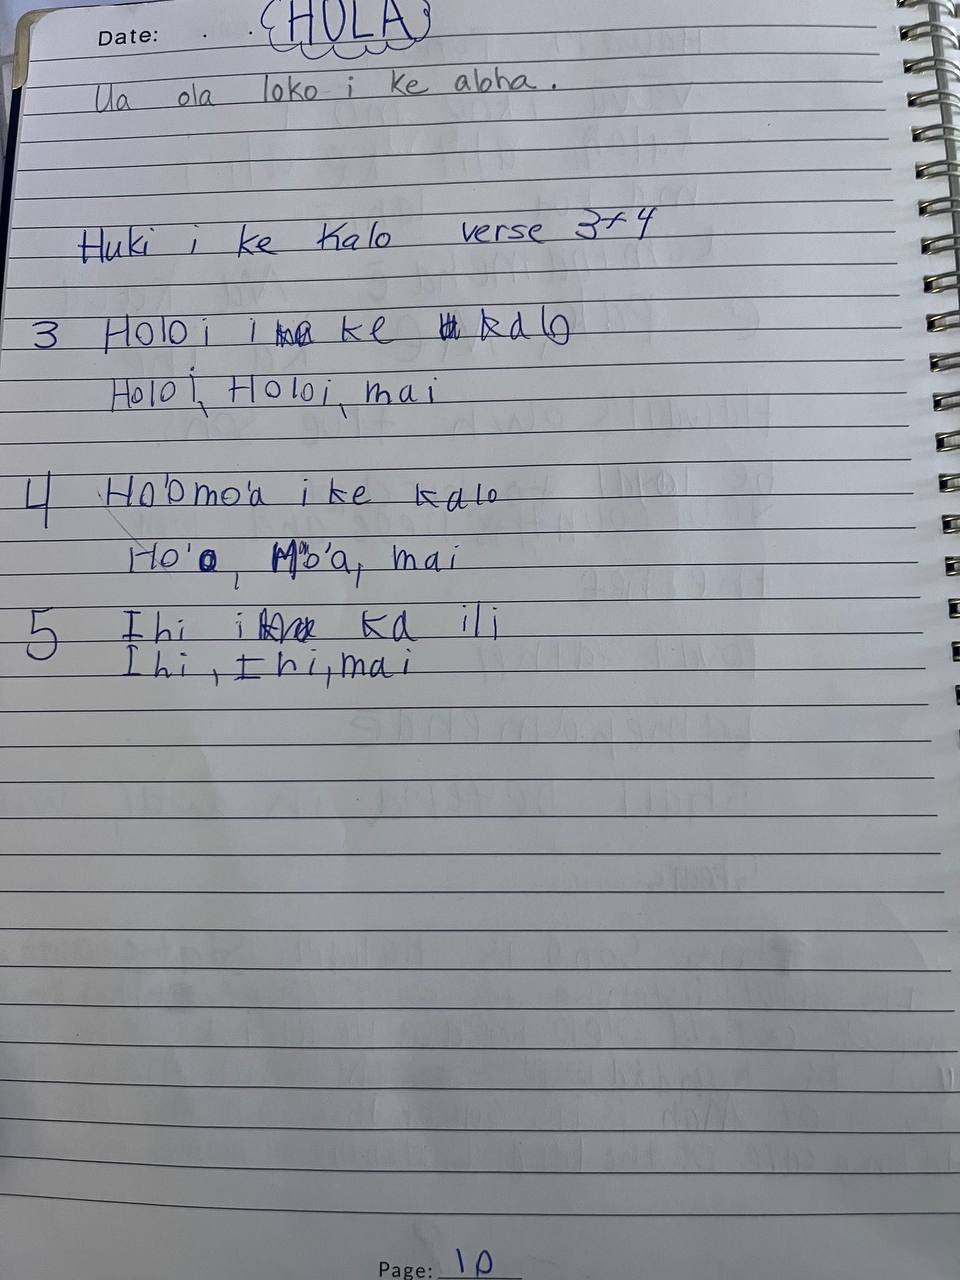 Date: . . HOLA
Ua ola loko i ke aloha.
Huki i ke Kalo verse 3+4
3 Holoi i ke kalo
Holoi, Holoi, mai
4 Ho'omo'a i ke kalo
Ho'o, Mo'a, mai
5 Ihi i ka ili
Ihi, Ihi, mai
Page: 10